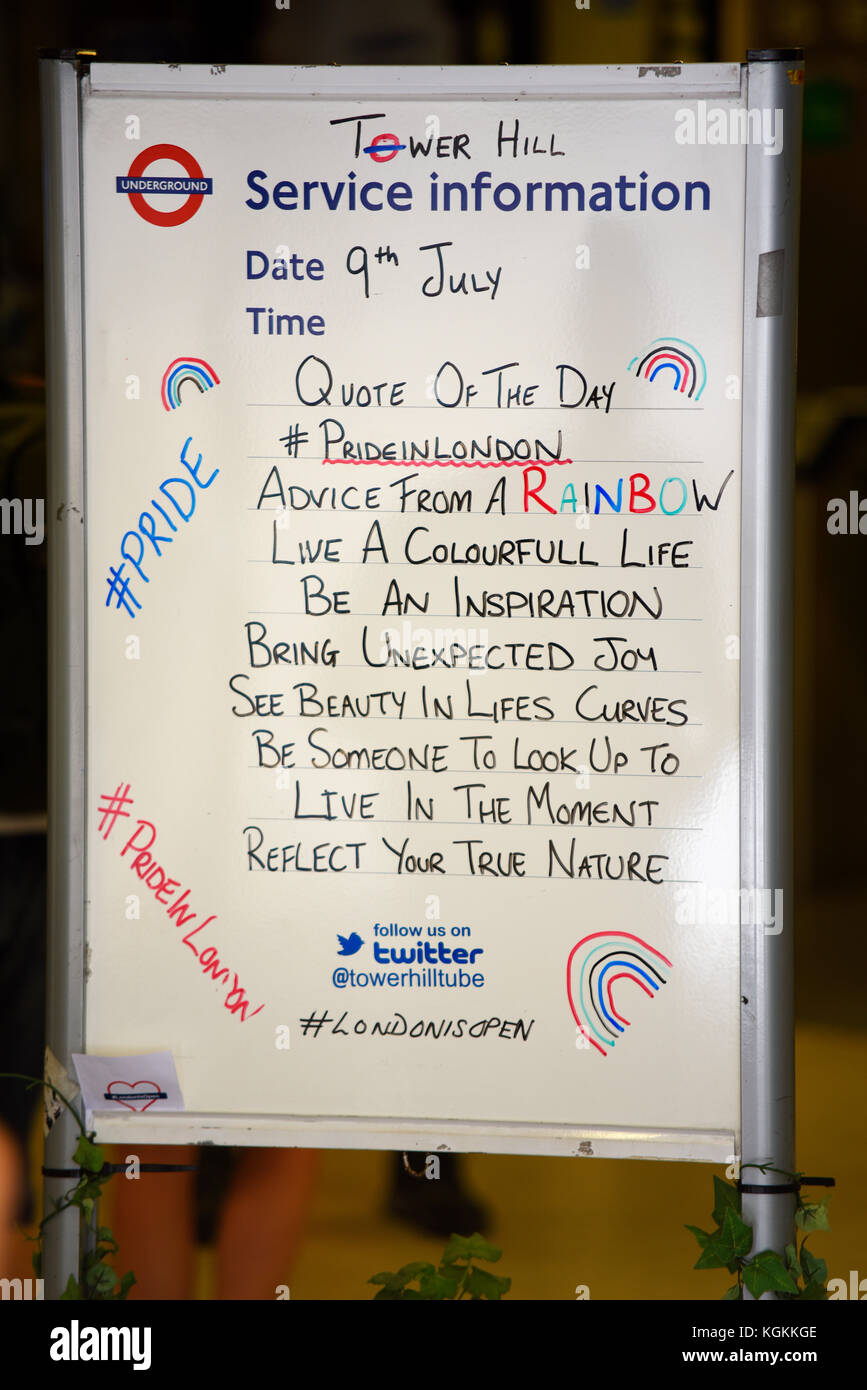 TOWER HILL
UNDERGROUND
Service information
Date 9th JULY
Time
QUOTE OF THE DAY
#PRIDEINLONDON
ADVICE FROM A RAINBOW
LIVE A COLOURFULL LIFE
BE AN INSPIRATION
BRING UNEXPECTED JOY
SEE BEAUTY IN LIFES CURVES
BE SOMEONE TO LOOK UP TO
LIVE IN THE MOMENT
REFLECT YOUR TRUE NATURE
#PRIDE
#PRIDEINLONDON
follow us on
twitter
@towerhilltube
#LONDONISOPEN
#LondonIsOpen
alamy
Image ID: KGKKGE
www.alamy.com